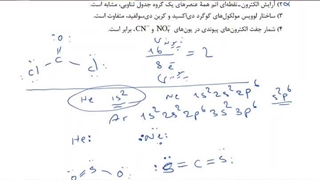 ۲) آرایش الکترون-نقطه‌ای اتم همهٔ عنصرهای یک گروه جدول تناوبی، مشابه است.
۳) ساختار لوویس مولکول‌های گوگرد دی‌اکسید و کربن دی‌سولفید، متفاوت است.
۴) شمار جفت الکترون‌های پیوندی در یون‌های NO₂⁻ و CN⁻، برابر است.
O
C
Cl Cl
16 / 8 = 2
He 1s² Ne 1s² 2s² 2p⁶ s²p⁶
Ar 1s² 2s² 2p⁶ 3s² 3p⁶
He: :Ne:
O = S O S = C = S